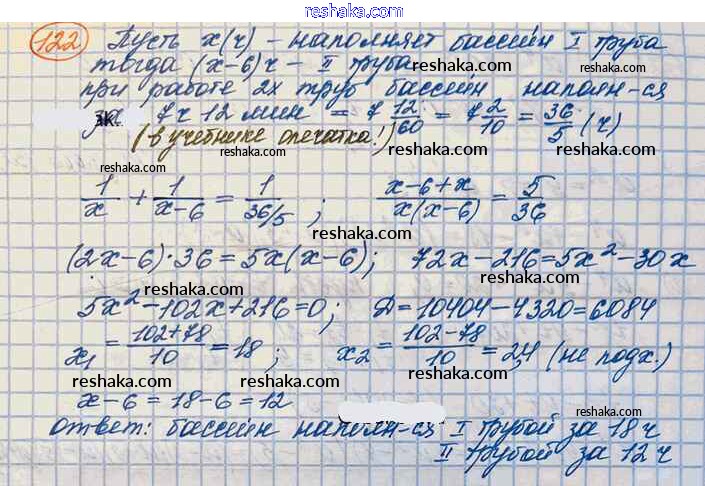 reshaka.com
122 Пусть x(ч) – наполняет бассейн I труба
тогда (x-6)ч – II труба reshaka.com
при работе 2х труб бассейн наполн-ся
за 7ч 12 мин = 7 12/60 = 7 2/10 = 36/5 (ч)
reshaka.com
(в учебнике опечатка!) reshaka.com
reshaka.com
1/x + 1/(x-6) = 1/(36/5); (x-6+x)/(x(x-6)) = 5/36
reshaka.com reshaka.com
(2x-6)·36 = 5x(x-6); 72x-216=5x²-30x
reshaka.com reshaka.com
5x²-102x+216=0; D=10404-4320=6084
reshaka.com reshaka.com
x₁ = (102+78)/10 = 18; x₂ = (102-78)/10 = 2,4 (не подх.)
reshaka.com reshaka.com
x-6 = 18-6 = 12
reshaka.com
ответ: бассейн наполн-ся I трубой за 18ч
reshaka.com
II трубой за 12ч
reshaka.com